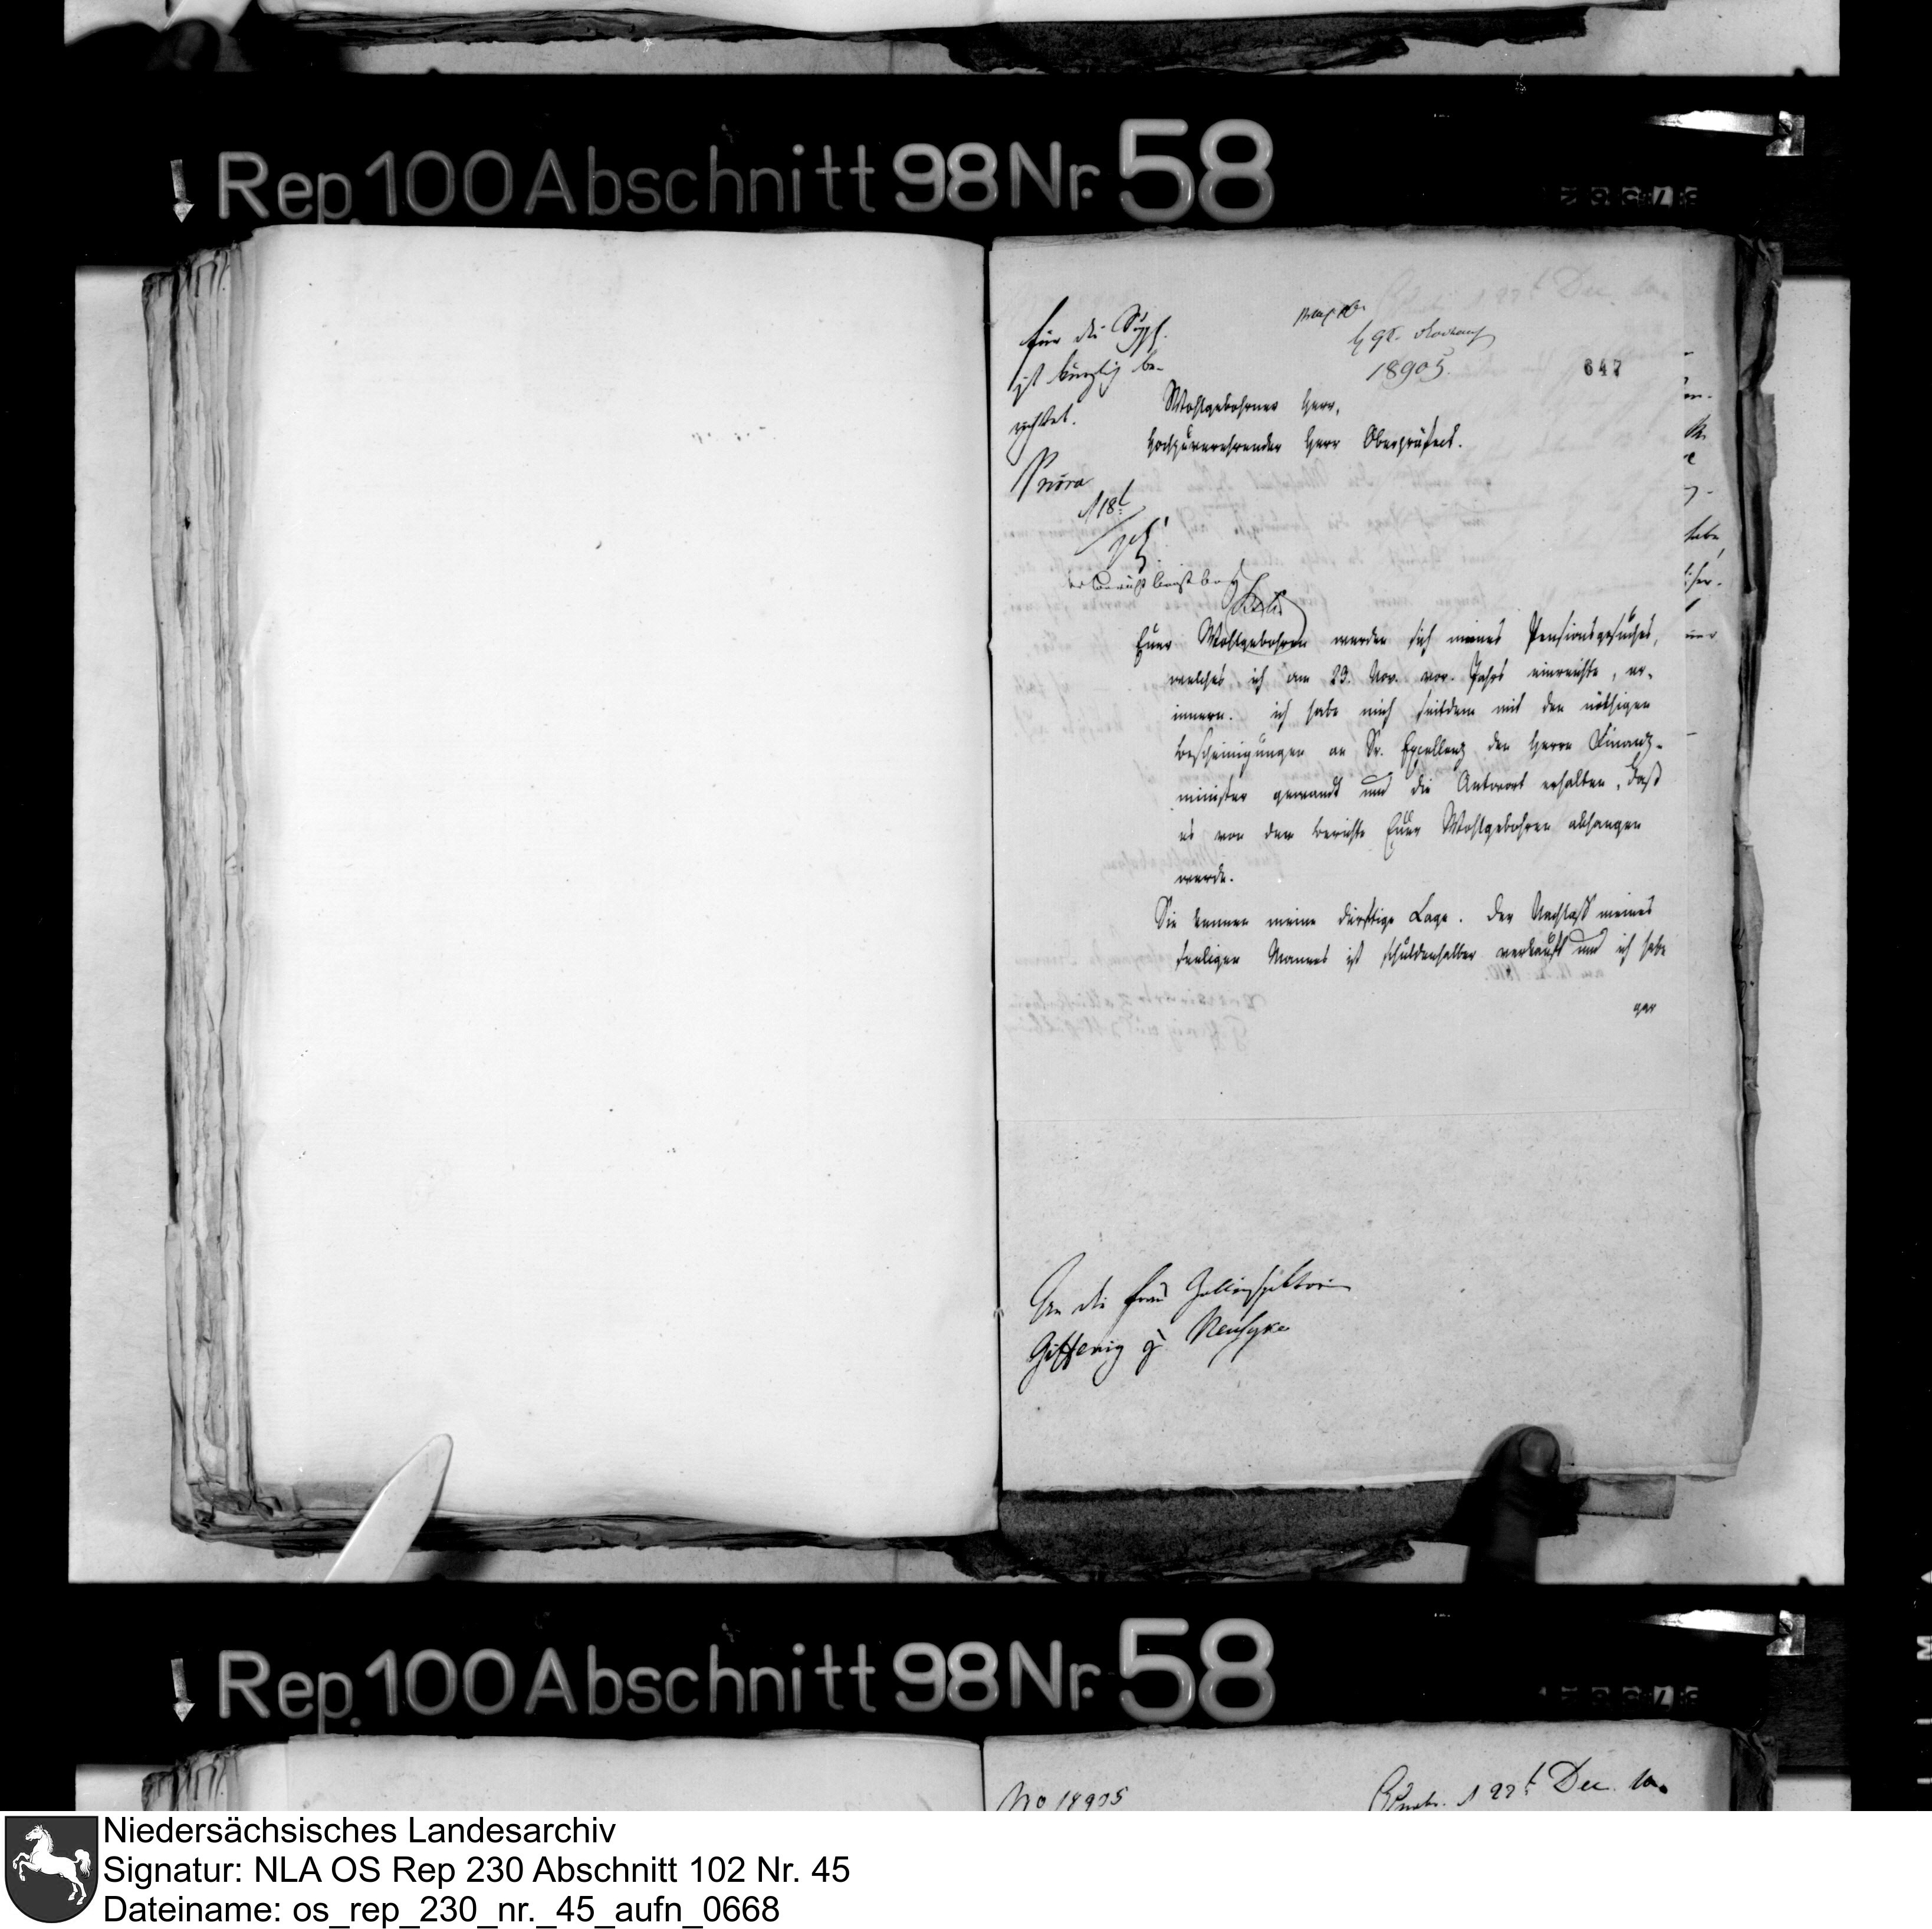 Rep. 100 Abschnitt 98 Nr. 58
für die
ist kürzlich be-
richtet.
18905.
647
Wohlgebohrner Herr,
Hochzuverehrender Herr Oberpräfect.
18t
Euer Wohlgebohren werden sich meines Pensionsgesuches,
welches ich am 23. Nov. vor. Jahrs einreichte, er-
innern. ich habe mich seitdem mit den nöthigen
Bescheinigungen an Sr. Excellenz den Herrn Finanz-
minister gewandt und die Antwort erhalten, daß
es von dem Berichte Euer Wohlgebohren abhangen
werde.
Sie kennen meine dürftige Lage. Der Nachlaß meines
seeligen Mannes ist schuldenhalber verkauft und ich habe
gar
An die Frau Zollinspektorin
zu
Rep. 100 Abschnitt 98 Nr. 58
No 18905
22t Dec. 10.
Niedersächsisches Landesarchiv
Signatur: NLA OS Rep 230 Abschnitt 102 Nr. 45
Dateiname: os_rep_230_nr._45_aufn_0668